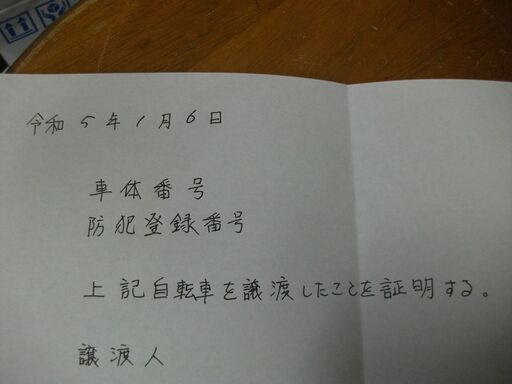 令和5年1月6日
車体番号
防犯登録番号
上記自転車を譲渡したことを証明する。
譲渡人